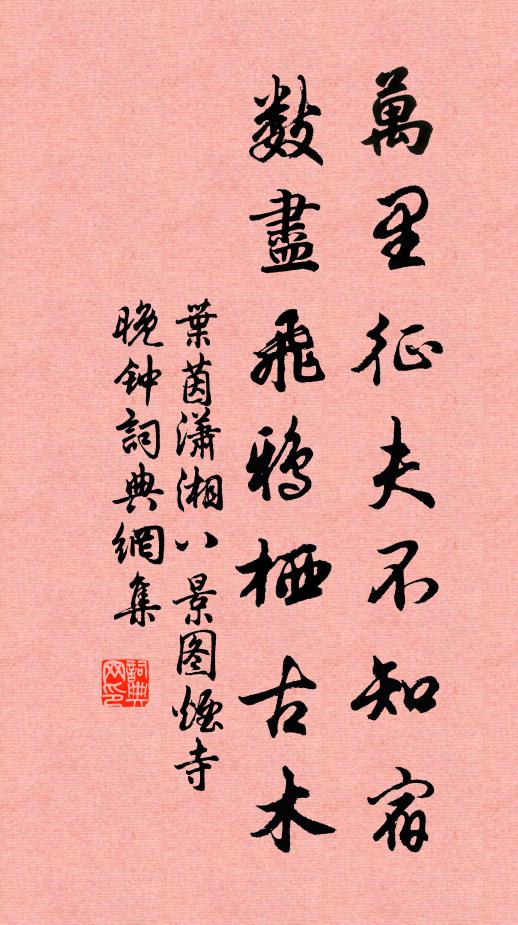 萬里征夫不知宿
數盡飛鴉栖古木
葉茵瀟湘八景图煙寺
晚钟詞典網集
詞典网印